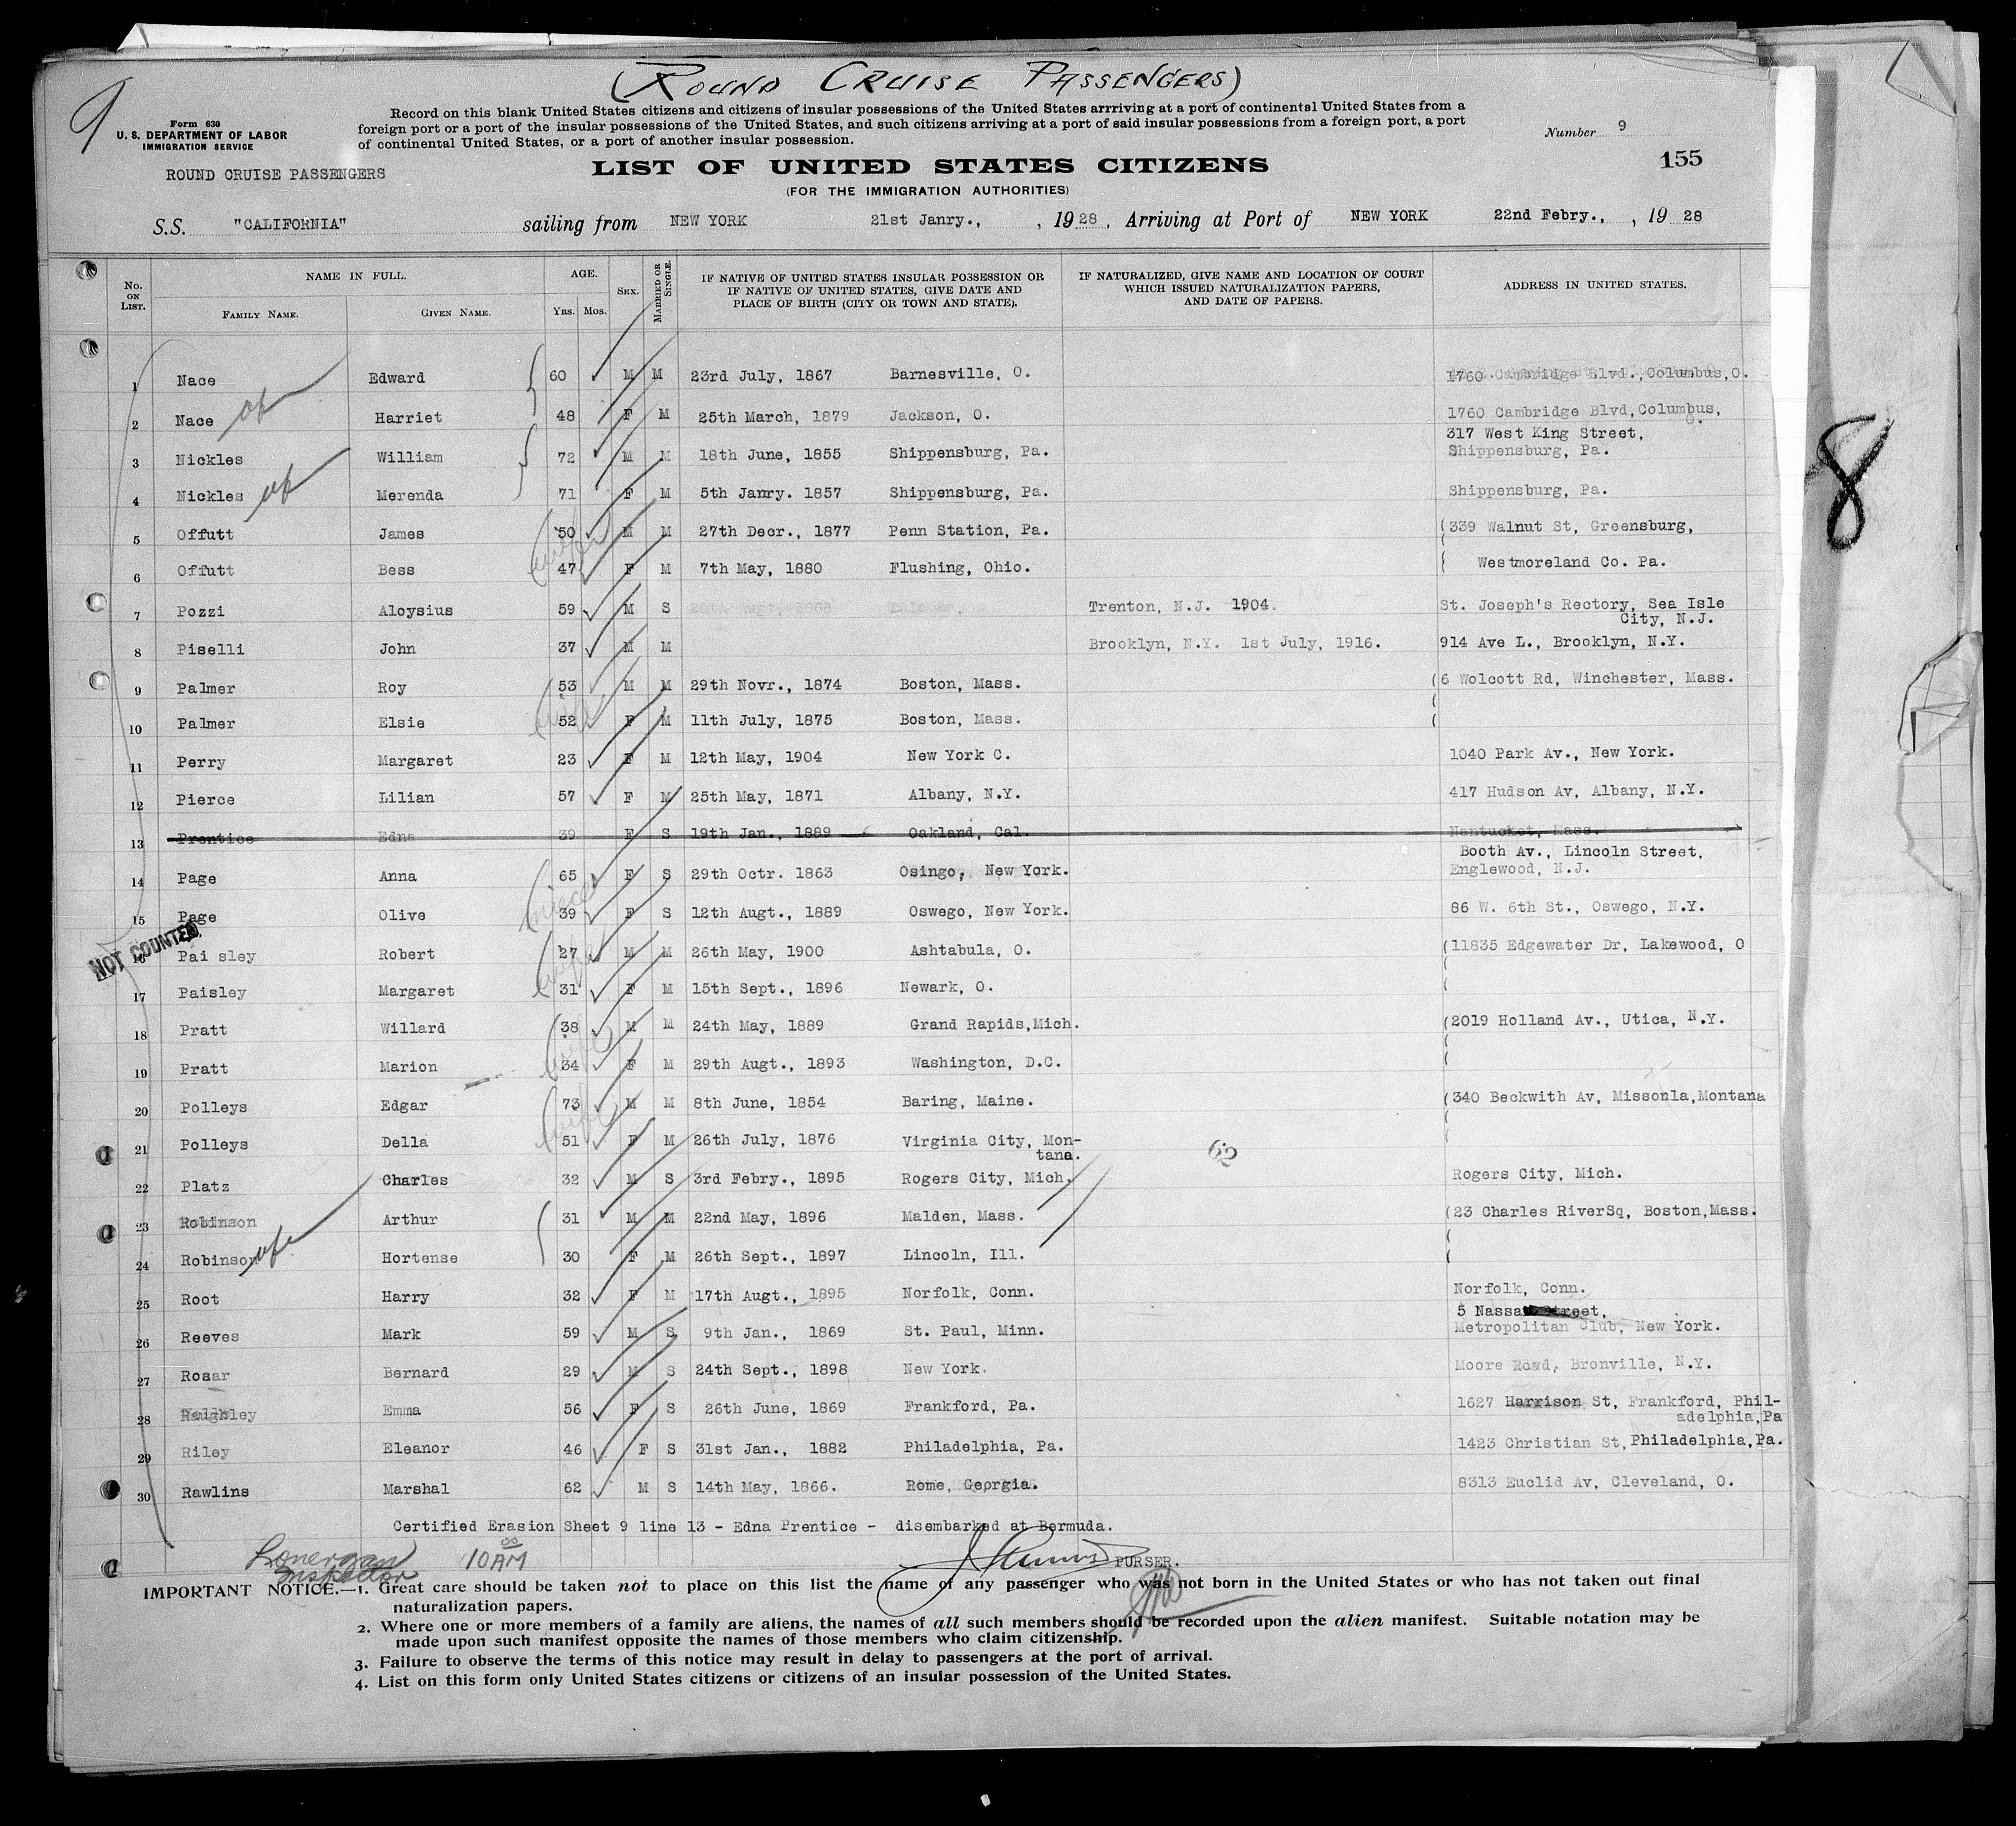 (ROUND CRUISE PASSENGERS)
9
Form 630
U. S. DEPARTMENT OF LABOR
IMMIGRATION SERVICE
Record on this blank United States citizens and citizens of insular possessions of the United States arrriving at a port of continental United States from a
foreign port or a port of the insular possessions of the United States, and such citizens arriving at a port of said insular possessions from a foreign port, a port
of continental United States, or a port of another insular possession.
Number 9
155
ROUND CRUISE PASSENGERS
LIST OF UNITED STATES CITIZENS
(FOR THE IMMIGRATION AUTHORITIES)
S.S. "CALIFORNIA" sailing from NEW YORK 21st Janry., , 1928, Arriving at Port of NEW YORK 22nd Febry., , 1928
No. ON LIST. NAME IN FULL. FAMILY NAME. GIVEN NAME. AGE. Yrs. Mos. SEX. MARRIED OR SINGLE. IF NATIVE OF UNITED STATES INSULAR POSSESSION OR IF NATIVE OF UNITED STATES, GIVE DATE AND PLACE OF BIRTH (CITY OR TOWN AND STATE). IF NATURALIZED, GIVE NAME AND LOCATION OF COURT WHICH ISSUED NATURALIZATION PAPERS, AND DATE OF PAPERS. ADDRESS IN UNITED STATES.
1 Nace Edward 60 M M 23rd July, 1867 Barnesville, O. 1760 Cambridge Blvd., Columbus, O.
2 Nace Harriet 48 F M 25th March, 1879 Jackson, O. 1760 Cambridge Blvd, Columbus, O.
317 West King Street,
3 Nickles William 72 M M 18th June, 1855 Shippensburg, Pa. Shippensburg, Pa.
4 Nickles Merenda 71 F M 5th Janry. 1857 Shippensburg, Pa. Shippensburg, Pa.
5 Offutt James 50 M M 27th Decr., 1877 Penn Station, Pa. (339 Walnut St, Greensburg,
6 Offutt Bess 47 F M 7th May, 1880 Flushing, Ohio. ( Westmoreland Co. Pa.
7 Pozzi Aloysius 59 M S Trenton, N.J. 1904. St. Joseph's Rectory, Sea Isle
City, N.J.
8 Piselli John 37 M M Brooklyn, N.Y. 1st July, 1916. 914 Ave L., Brooklyn, N.Y.
9 Palmer Roy 53 M M 29th Novr., 1874 Boston, Mass. (6 Wolcott Rd, Winchester, Mass.
10 Palmer Elsie 52 F M 11th July, 1875 Boston, Mass. (
11 Perry Margaret 23 F M 12th May, 1904 New York C. 1040 Park Av., New York.
12 Pierce Lilian 57 F M 25th May, 1871 Albany, N.Y. 417 Hudson Av, Albany, N.Y.
13 Prentice Edna 39 F S 19th Jan., 1889 Oakland, Cal. Nantucket, Mass.
Booth Av., Lincoln Street,
14 Page Anna 65 F S 29th Octr. 1863 Osingo, New York. Englewood, N.J.
15 Page Olive 39 F S 12th Augt., 1889 Oswego, New York. 86 W. 6th St., Oswego, N.Y.
NOT COUNTED
16 Pai sley Robert 27 M M 26th May, 1900 Ashtabula, O. (11835 Edgewater Dr, Lakewood, O
17 Paisley Margaret 31 F M 15th Sept., 1896 Newark, O. (
18 Pratt Willard 38 M M 24th May, 1889 Grand Rapids,Mich. (2019 Holland Av., Utica, N.Y.
19 Pratt Marion 34 F M 29th Augt., 1893 Washington, D.C. (
20 Polleys Edgar 73 M M 8th June, 1854 Baring, Maine. (340 Beckwith Av, Missonla,Montana
21 Polleys Della 51 F M 26th July, 1876 Virginia City, Mon-
tana.
62
22 Platz Charles 32 M S 3rd Febry., 1895 Rogers City, Mich. Rogers City, Mich.
23 Robinson Arthur 31 M M 22nd May, 1896 Malden, Mass. (23 Charles RiverSq, Boston,Mass.
24 Robinson Hortense 30 F M 26th Sept., 1897 Lincoln, Ill. (
25 Root Harry 32 F M 17th Augt., 1895 Norfolk, Conn. Norfolk, Conn.
5 Nassau Street,
26 Reeves Mark 59 M S 9th Jan., 1869 St. Paul, Minn. Metropolitan Club, New York.
27 Rosar Bernard 29 M S 24th Sept., 1898 New York. Moore Road, Bronville, N.Y.
28 Emma 56 F S 26th June, 1869 Frankford, Pa. 1627 Harrison St, Frankford, Phil-
adelphia,Pa
29 Riley Eleanor 46 F S 31st Jan., 1882 Philadelphia, Pa. 1423 Christian St, Philadelphia,Pa.
30 Rawlins Marshal 62 M S 14th May, 1866. Rome, Georgia. 8313 Euclid Av, Cleveland, O.
Certified Erasion Sheet 9 line 13 - Edna Prentice - disembarked at Bermuda.
Lonergan 10 00 AM
Inspector
PURSER.
IMPORTANT NOTICE.—1. Great care should be taken not to place on this list the name of any passenger who was not born in the United States or who has not taken out final
naturalization papers.
2. Where one or more members of a family are aliens, the names of all such members should be recorded upon the alien manifest. Suitable notation may be
made upon such manifest opposite the names of those members who claim citizenship.
3. Failure to observe the terms of this notice may result in delay to passengers at the port of arrival.
4. List on this form only United States citizens or citizens of an insular possession of the United States.
8